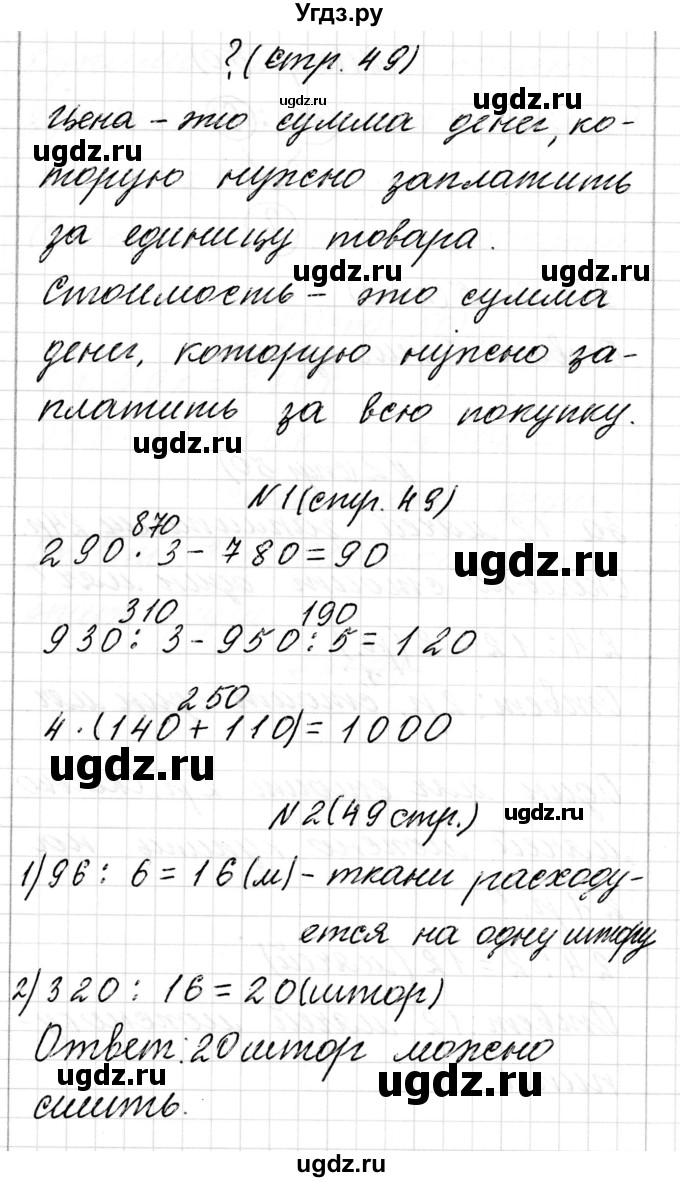 Угдз.ру
? (стр. 49)
ugdz.ru
ugdz.ru
Цена – это сумма денег, ко-
ugdz.ru
торую нужно заплатить
за единицу товара.
ugdz.ru
ugdz.ru
Стоимость – это сумма
денег, которую нужно за-
платить за всю покупку.
ugdz.ru
N1 (стр. 49)
870
290 · 3 – 780 = 90
ugdz.ru
310 190
930 : 3 – 950 : 5 = 120
250
4 · (140 + 110) = 1000
ugdz.ru
N2 (49 стр.)
ugdz.ru
1) 96 : 6 = 16 (м) – ткани расходу-
ется на одну штору
2) 320 : 16 = 20 (штор)
Ответ: 20 штор можно
ugdz.ru
ugdz.ru
сшить.
ugdz.ru